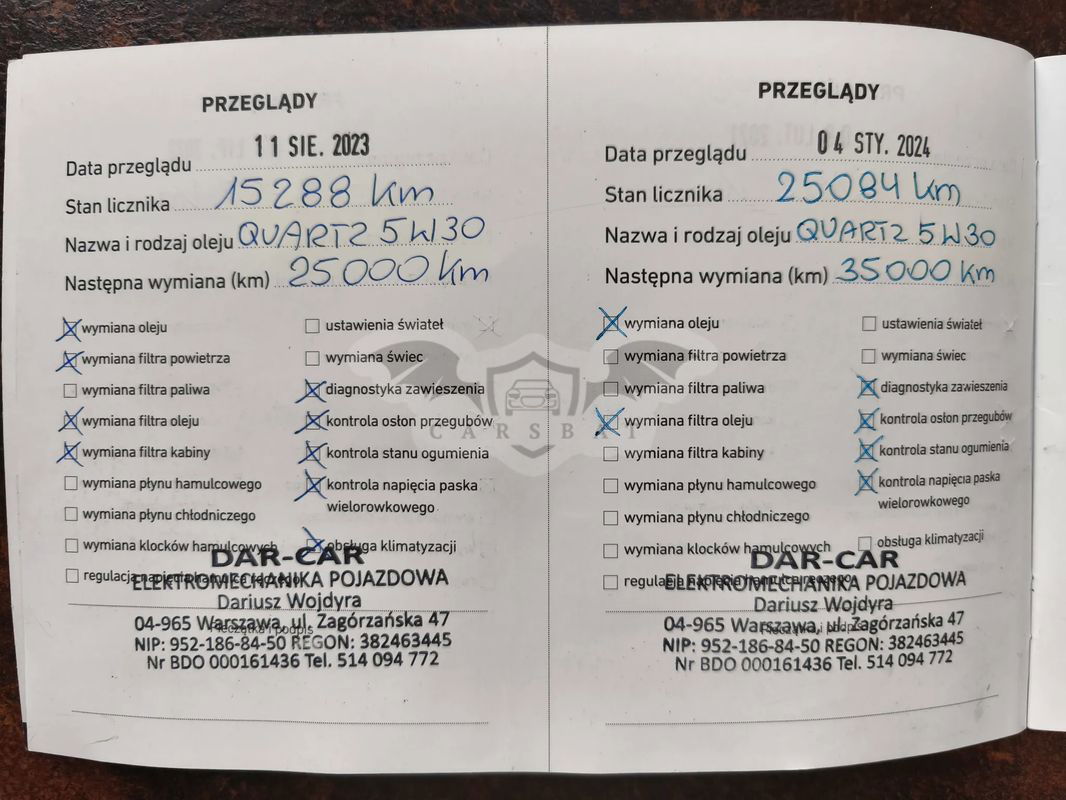 PRZEGLĄDY
Data przeglądu 11 SIE. 2023
Stan licznika 15288 km
Nazwa i rodzaj oleju QUARTZ 5W30
Następna wymiana (km) 25000 km
wymiana oleju
wymiana filtra powietrza
wymiana filtra paliwa
wymiana filtra oleju
wymiana filtra kabiny
wymiana płynu hamulcowego
wymiana płynu chłodniczego
wymiana klocków hamulcowych
regulacja napięcia hamulca ręcznego
ustawienia świateł
wymiana świec
diagnostyka zawieszenia
kontrola osłon przegubów
kontrola stanu ogumienia
kontrola napięcia paska
wielorowkowego
obsługa klimatyzacji
DAR-CAR
ELEKTROMECHANIKA POJAZDOWA
Dariusz Wojdyra
04-965 Warszawa, ul. Zagórzańska 47
Pieczątka i podpis
NIP: 952-186-84-50 REGON: 382463445
Nr BDO 000161436 Tel. 514 094 772
PRZEGLĄDY
Data przeglądu 04 STY. 2024
Stan licznika 25084 km
Nazwa i rodzaj oleju QUARTZ 5W30
Następna wymiana (km) 35000 km
wymiana oleju
wymiana filtra powietrza
wymiana filtra paliwa
wymiana filtra oleju
wymiana filtra kabiny
wymiana płynu hamulcowego
wymiana płynu chłodniczego
wymiana klocków hamulcowych
regulacja napięcia hamulca ręcznego
ustawienia świateł
wymiana świec
diagnostyka zawieszenia
kontrola osłon przegubów
kontrola stanu ogumienia
kontrola napięcia paska
wielorowkowego
obsługa klimatyzacji
DAR-CAR
ELEKTROMECHANIKA POJAZDOWA
Dariusz Wojdyra
04-965 Warszawa, ul. Zagórzańska 47
Pieczątka i podpis
NIP: 952-186-84-50 REGON: 382463445
Nr BDO 000161436 Tel. 514 094 772